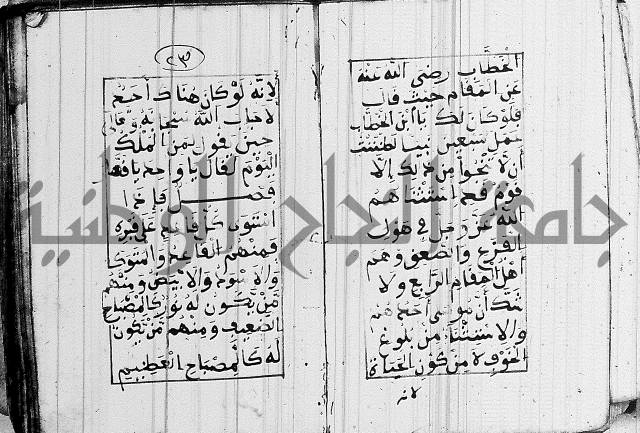 الخطاب رضي الله عنه
عن المقام حيث قال
فلو كان لك يا ابن الخطاب
عمل سبعين نبيا لظننت
أن لا تنجوا من ذلك إلا
قوم قد استثناهم
الله عز وجل في هول
الفزع والصعق وهم
أهل المقام الرابع ولا
شك أن موسى أحدهم
والاستثناء من بلوغ
الخوف لا من كون الحياة
لانه
٢٣
لانه لو كان هناك أحد
لاجاب الله سبحانه وتعالى
حين يقول لمن الملك
اليوم لقال يا واحد يا قهار
فصل فإذا
استوى كل قاعد على قبره
فمنهم القاعد والمستوى
والاسود والابيض ومنهم
من يكون له نور كالمصباح
الضعيف ومنهم من يكون
له كالمصباح العظيم
جامعة النجاح الوطنية